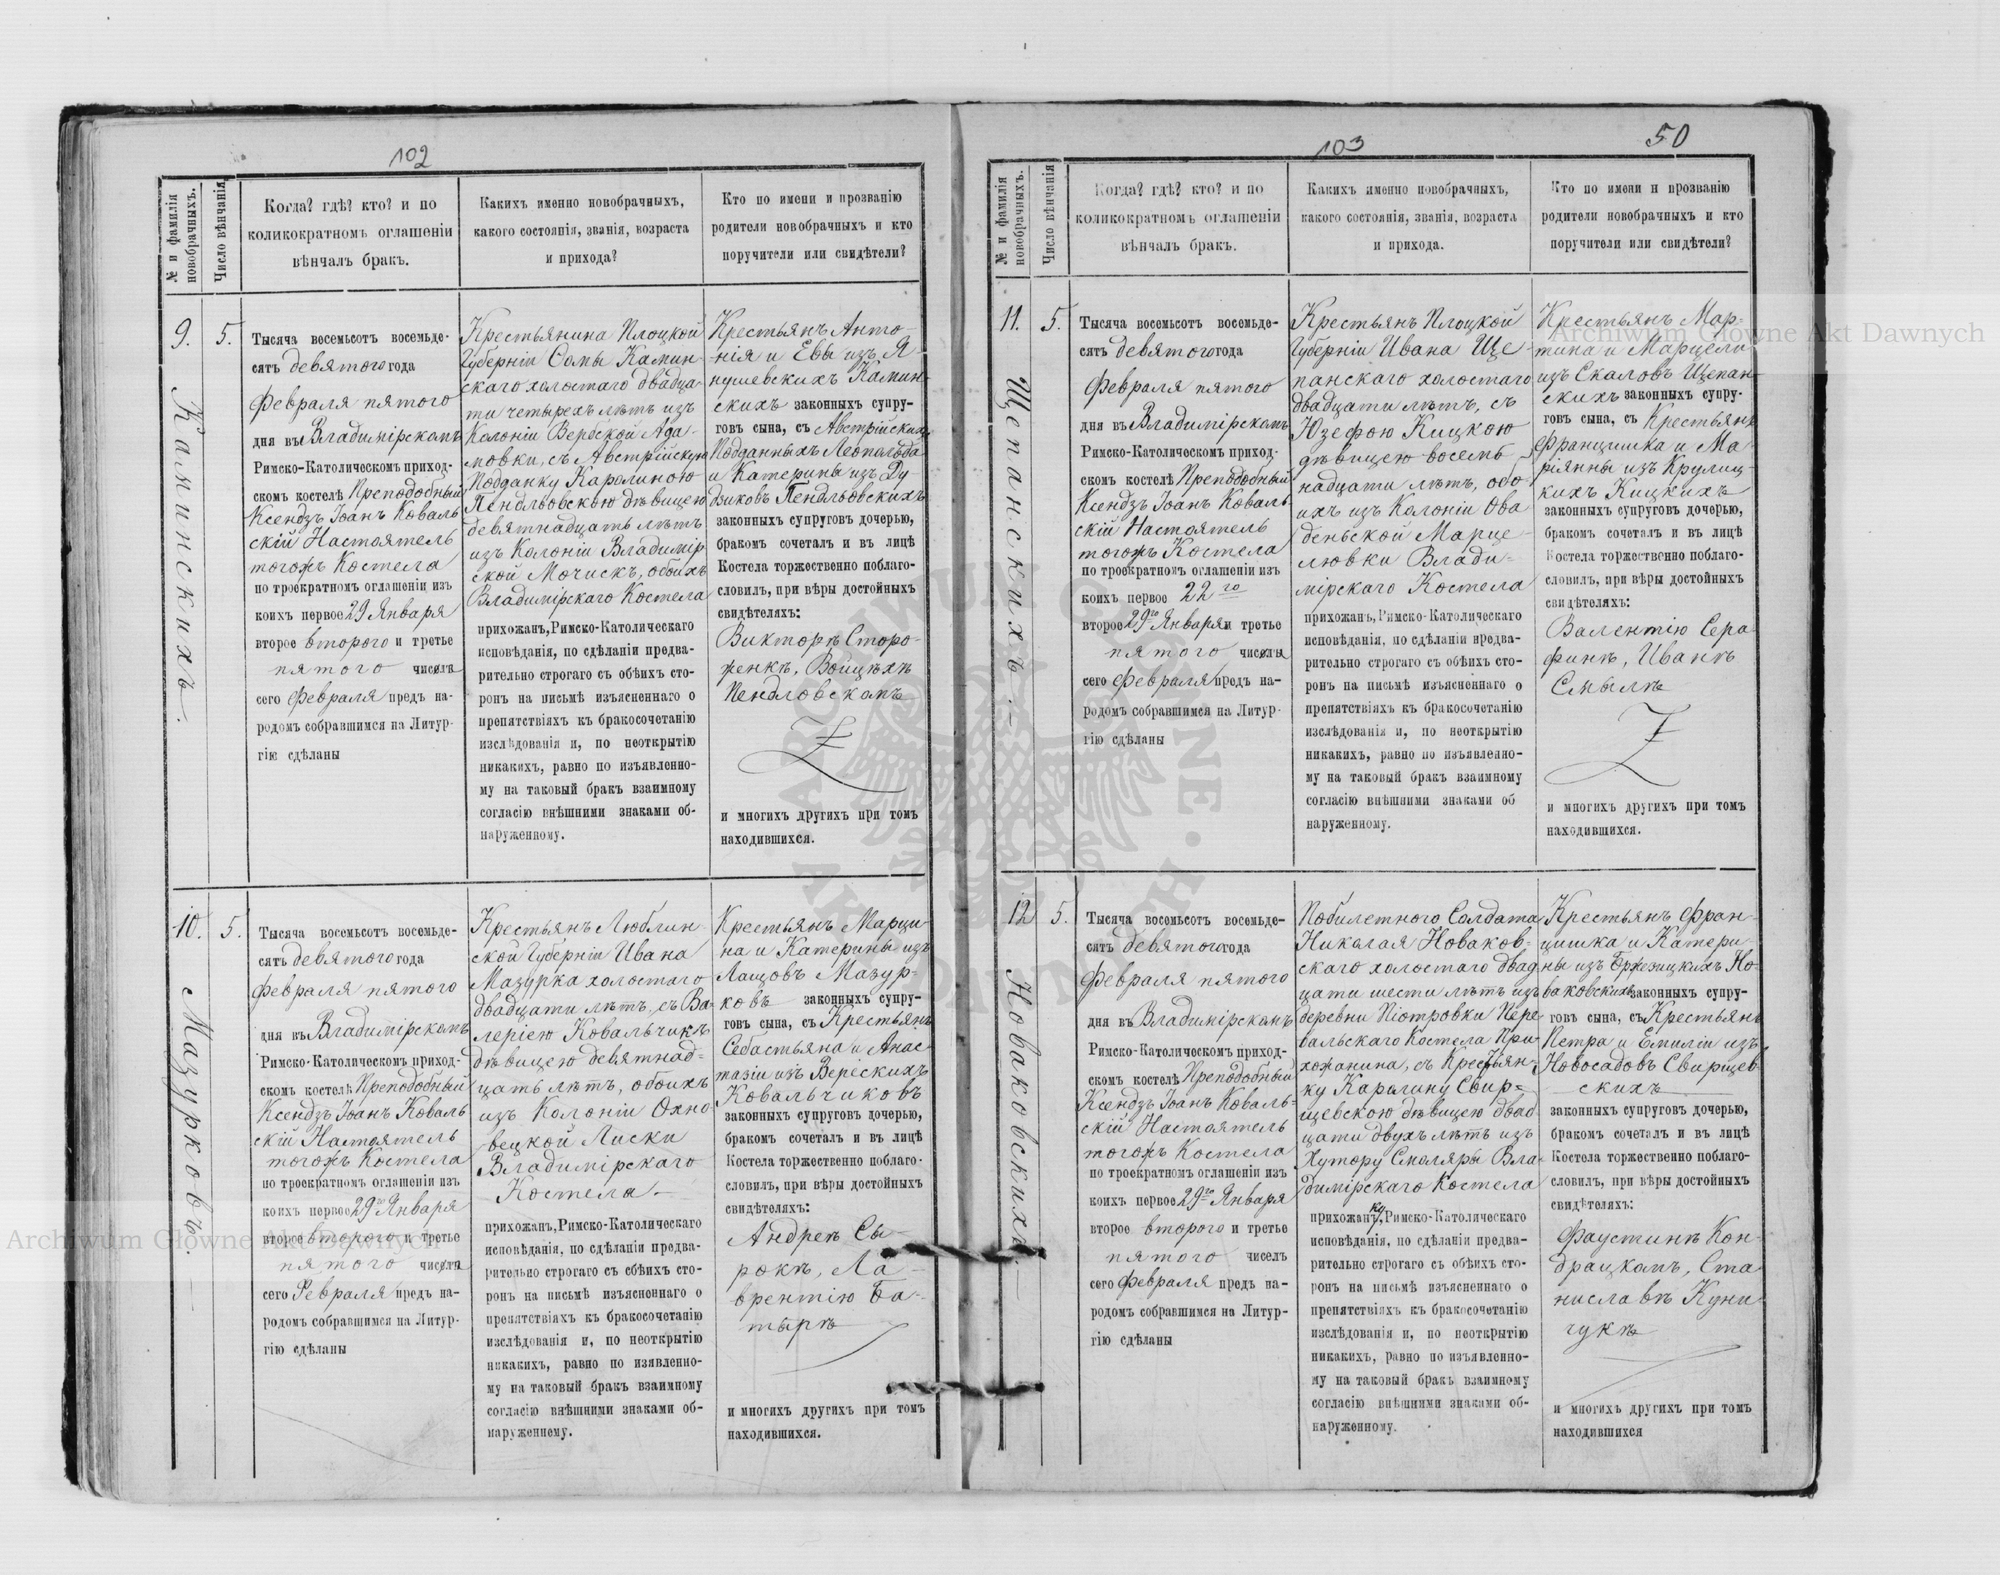 102
№ и фамилія новобрачныхъ.
Число вѣнчанія
Когда? гдѣ? кто? и по
коликократномъ оглашеніи
вѣнчалъ бракъ.
Какихъ именно новобрачныхъ,
какого состоянія, званія, возраста
и прихода?
Кто по имени и прозванію
родители новобрачныхъ и кто
поручители или свидѣтели?
9.
Каминскихъ.
5.
Тысяча восемьсотъ восемьде-
сятъ девятого года
Февраля пятого
дня въ Владимірскомъ
Римско-Католическомъ приход-
скомъ костелѣ Преподобный
Ксендзъ Іоанъ Коваль
скій Настоятель
тогожъ Костела
по троекратномъ оглашеніи изъ
коихъ первое 29 Января
второе второго и третье
пятого числъ
сего Февраля предъ на-
родомъ собравшимся на Литур-
гію сдѣланы
Крестьянина Плоцкой
Губерніи Фомы Камин-
скаго холостаго двадца-
ти четырехъ лѣтъ изъ
Колоніи Вербской Ада-
мовки, съ Австрійскую
Подданку Каролиною
Пендльовскою дѣвицею
девятнадцать лѣтъ
изъ Колоніи Владимір
ской Мочискъ, обоихъ
Владимірскаго Костела
прихожанъ, Римско-Католическаго
исповѣданія, по сдѣланіи предва-
рительно строгаго съ обѣихъ сто-
ронъ на письмѣ изъясненнаго о
препятствіяхъ къ бракосочетанію
изслѣдованія и, по неоткрытію
никакихъ, равно по изъявленно-
му на таковый бракъ взаимному
согласію внѣшними знаками об-
наруженному.
Крестьянъ Анто-
нія и Евы изъ Я-
нушевскихъ Камин-
скихъ законныхъ супру-
говъ сына, съ Австрійскихъ
Подданныхъ Леопольда
и Катерины изъ Ду
дзиковъ Пендльовскихъ
законныхъ супруговъ дочерью,
бракомъ сочеталъ и въ лицѣ
Костела торжественно поблаго-
словилъ, при вѣры достойныхъ
свидѣтеляхъ:
Викторѣ Сторо-
женкѣ, Войцѣхѣ
Пендловскомъ
и многихъ другихъ при томъ
находившихся.
10.
Мазурковъ.
5.
Тысяча восемьсотъ восемьде-
сятъ девятого года
Февраля пятого
дня въ Владимірскомъ
Римско-Католическомъ приход-
скомъ костелѣ Преподобный
Ксендзъ Іоанъ Коваль
скій Настоятель
тогожъ Костела
по троекратномъ оглашеніи изъ
коихъ первое 29го Января
второе второго и третье
пятого числъ
сего Февраля предъ на-
родомъ собравшимся на Литур-
гію сдѣланы
Крестьянъ Люблин-
ской Губерніи Ивана
Мазурка холостаго
двадцати лѣтъ, съ Ва-
леріею Ковальчикъ
дѣвицею девятнад-
цать лѣтъ, обоихъ
изъ Колоніи Охно
вецкой Лиски
Владимірскаго
Костела.
прихожанъ, Римско-Католическаго
исповѣданія, по сдѣланіи предва-
рительно строгаго съ обѣихъ сто-
ронъ на письмѣ изъясненнаго о
препятствіяхъ къ бракосочетанію
изслѣдованія и, по неоткрытію
никакихъ, равно по изявленно-
му на таковый бракъ взаимному
согласію внѣшними знаками об-
наруженнему.
Крестьянъ Марци-
на и Катерины изъ
Лащовъ Мазур-
ковъ законныхъ супру-
говъ сына, съ Крестьянъ
Себастьяна и Анас-
тазіи изъ Верескихъ
Ковальчиковъ
законныхъ супруговъ дочерью,
бракомъ сочеталъ и въ лицѣ
Костела торжественно поблаго-
словилъ, при вѣры достойныхъ
свидѣтеляхъ:
Андреѣ Сы-
рокѣ, Ла-
врентію Ба-
тырѣ
и многихъ другихъ при томъ
находившихся.
103
50
№ и фамилія новобрачныхъ.
Число вѣнчанія
Когда? гдѣ? кто? и по
коликократномъ оглашеніи
вѣнчалъ бракъ.
Какихъ именно новобрачныхъ,
какого состоянія, званія, возраста
и прихода.
Кто по имени и прозванію
родители новобрачныхъ и кто
поручители или свидѣтели?
11.
Щепанскихъ.
5.
Тысяча восемьсотъ восемьде-
сятъ девятого года
Февраля пятого
дня въ Владимірскомъ
Римско-Католическомъ приход-
скомъ костелѣ Преподобный
Ксендзъ Іоанъ Коваль
скій Настоятель
тогожъ Костела
по троекратномъ оглашеніи изъ
коихъ первое 22го
второе 29го Января и третье
пятого числа
сего Февраля предъ на-
родомъ собравшимся на Литур-
гію сдѣланы
Крестьянъ Плоцкой
Губерніи Ивана Ще-
панскаго холостаго
двадцати лѣтъ, съ
Юзефою Кицкою
дѣвицею восемь-
надцати лѣтъ, обо
ихъ изъ Колоніи Ова
деньской Марце-
любки Влади-
мірскаго Костела
прихожанъ, Римско-Католическаго
исповѣданія, по сдѣланіи предва-
рительно строгаго съ обѣихъ сто-
ронъ на письмѣ изъясненнаго о
препятствіяхъ къ бракосочетанію
изслѣдованія и, по неоткрытію
никакихъ, равно по изъявленно-
му на таковый бракъ взаимному
согласію внѣшними знаками об
наруженному.
Крестьянъ Мар-
тина и Марцели
изъ Скаловъ Щепан-
скихъ законныхъ супру-
говъ сына, съ Крестьянъ
Францишка и Ма-
ріянны изъ Крулиц-
кихъ Кицкихъ
законныхъ супруговъ дочерью,
бракомъ сочеталъ и въ лицѣ
Костела торжественно поблаго-
словилъ, при вѣры достойныхъ
свидѣтеляхъ:
Валентію Сера
финѣ, Иванѣ
Смылѣ
и многихъ другихъ при томъ
находившихся.
12
Новаковскихъ.
5.
Тысяча восемьсотъ восемьде-
сятъ девятого года
Февраля пятого
дня въ Владимірскомъ
Римско-Католическомъ приход-
скомъ костелѣ Преподобный
Ксендзъ Іоанъ Коваль-
скій Настоятель
тогожъ Костела
по троекратномъ оглашеніи изъ
коихъ первое 29го Января
второе второго и третье
пятого числъ
сего Февраля предъ на-
родомъ собравшимся на Литур-
гію сдѣланы
Побилетного Солдата
Николая Новаков-
скаго холостаго двад
цати шести лѣтъ изъ
деревни Піотровки Пере
вальскаго Костела При
хожанина, съ Крестьян-
ку Каролину Свир-
щевскою дѣвицею двад
цати двухъ лѣтъ изъ
Хутору Смоляры Вла-
димірскаго Костела
прихожанку, Римско-Католическаго
исповѣданія, по сдѣланіи предва-
рительно строгаго съ обѣихъ сто-
ронъ на письмѣ изъясненнаго о
препятствіяхъ къ бракосочетанію
изслѣдованія и, по неоткрытію
никакихъ, равно по изъявленно-
му на таковый бракъ взаимному
согласію внѣшними знаками об-
наруженному.
Крестьянъ Фран-
цишка и Катери-
ны изъ Бржезицкихъ Но-
ваковскихъ законныхъ супру-
говъ сына, съ Крестьянъ
Петра и Емиліи изъ
Новосадовъ Свирщев-
скихъ
законныхъ супруговъ дочерью,
бракомъ сочеталъ и въ лицѣ
Костела торжественно поблаго-
словилъ, при вѣры достойныхъ
свидѣтеляхъ:
Фаустинѣ Кон-
драцкомъ, Ста
ниславѣ Куни-
чукѣ
и многихъ другихъ при томъ
находившихся
Archiwum Główne Akt Dawnych
Archiwum Główne Akt Dawnych